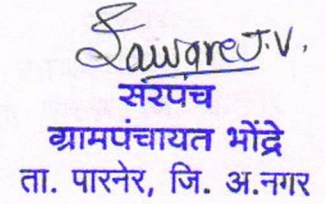 Laware J.V.
संरपच
ग्रामपंचायत भोंद्रे
ता. पारनेर, जि. अ.नगर